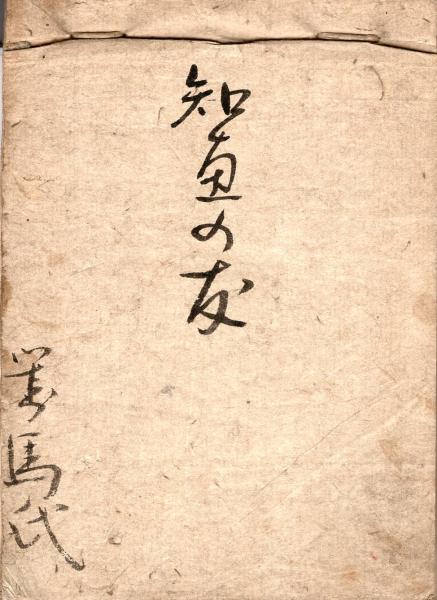 知恵の友
対馬氏